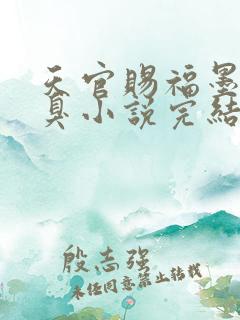 天官赐福墨
真小说完结
殷志强
未经同意禁止转载